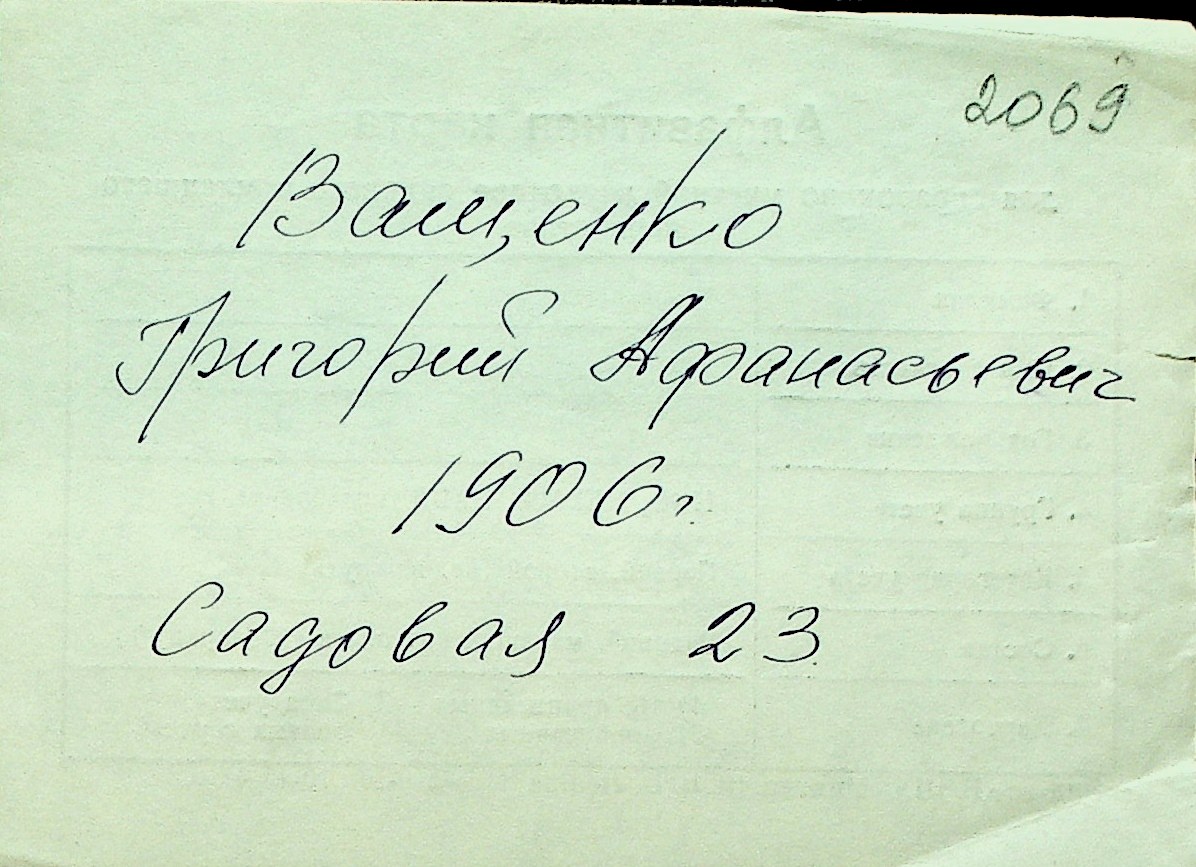 2069
Ващенко
Григорий Афанасьевич
1906г.
Садовая 23